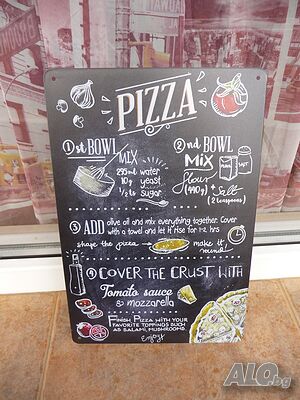 PIZZA
1 1st BOWL
MIX
295ml water
10g yeast
1/2 tsp sugar
2 2nd BOWL
MIX
flour
(490g) + Salt
(2 teaspoons)
3 ADD olive oil and mix everything together. Cover
with a towel and let it rise for 1-2 hrs
shape the pizza make it
round!
4 COVER THE CRUST WITH
Tomato sauce
& mozzarella
FINISH PIZZA WITH YOUR
FAVORITE TOPPINGS SUCH
AS SALAMI, MUSHROOMS.
Enjoy!
ALO.bg